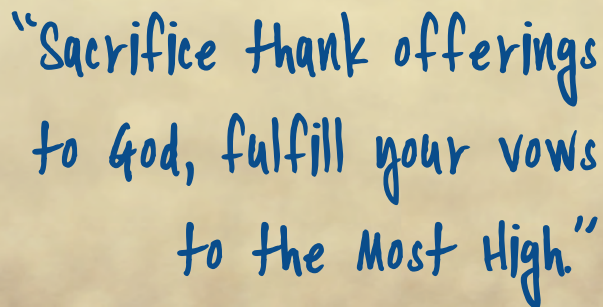 “Sacrifice thank offerings
to God, fulfill your vows
to the Most High.”